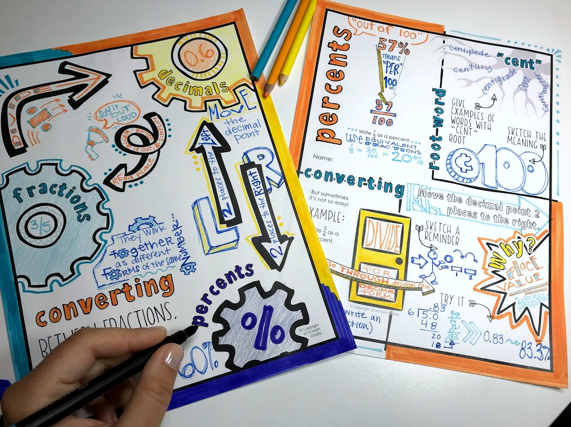 0.6
decimals
SAY IT
OUT
LOUD
MOVE
the
decimal
point
2 places to the
R
RIGHT
L
2 places to the
fractions
3/5
They work
together
as different
FORMS of the same
NUMBER...
converting
BETWEEN FRACTIONS,
percents
%
60%
percents
"out of 100"
57%
means
"PER
100"
57
100
Write 1/5 as a percent
use EQUIVALENT
FRACTIONS
20/100 = 20%
Name:
converting
But sometimes
it's not so easy!
EXAMPLE:
as a
percent.
(Write an
DIVIDE
root-word
"cent"
centipede
century
centigrade
GIVE
EXAMPLES OF
WORDS WITH
"CENT"
ROOT
SKETCH THE
MEANING
100
Move the decimal point 2
places to the right.
SKETCH A
REMINDER
why?
PLACE
VALUE
TRY IT
6 5.0
48
20
18
0.83
83.3%